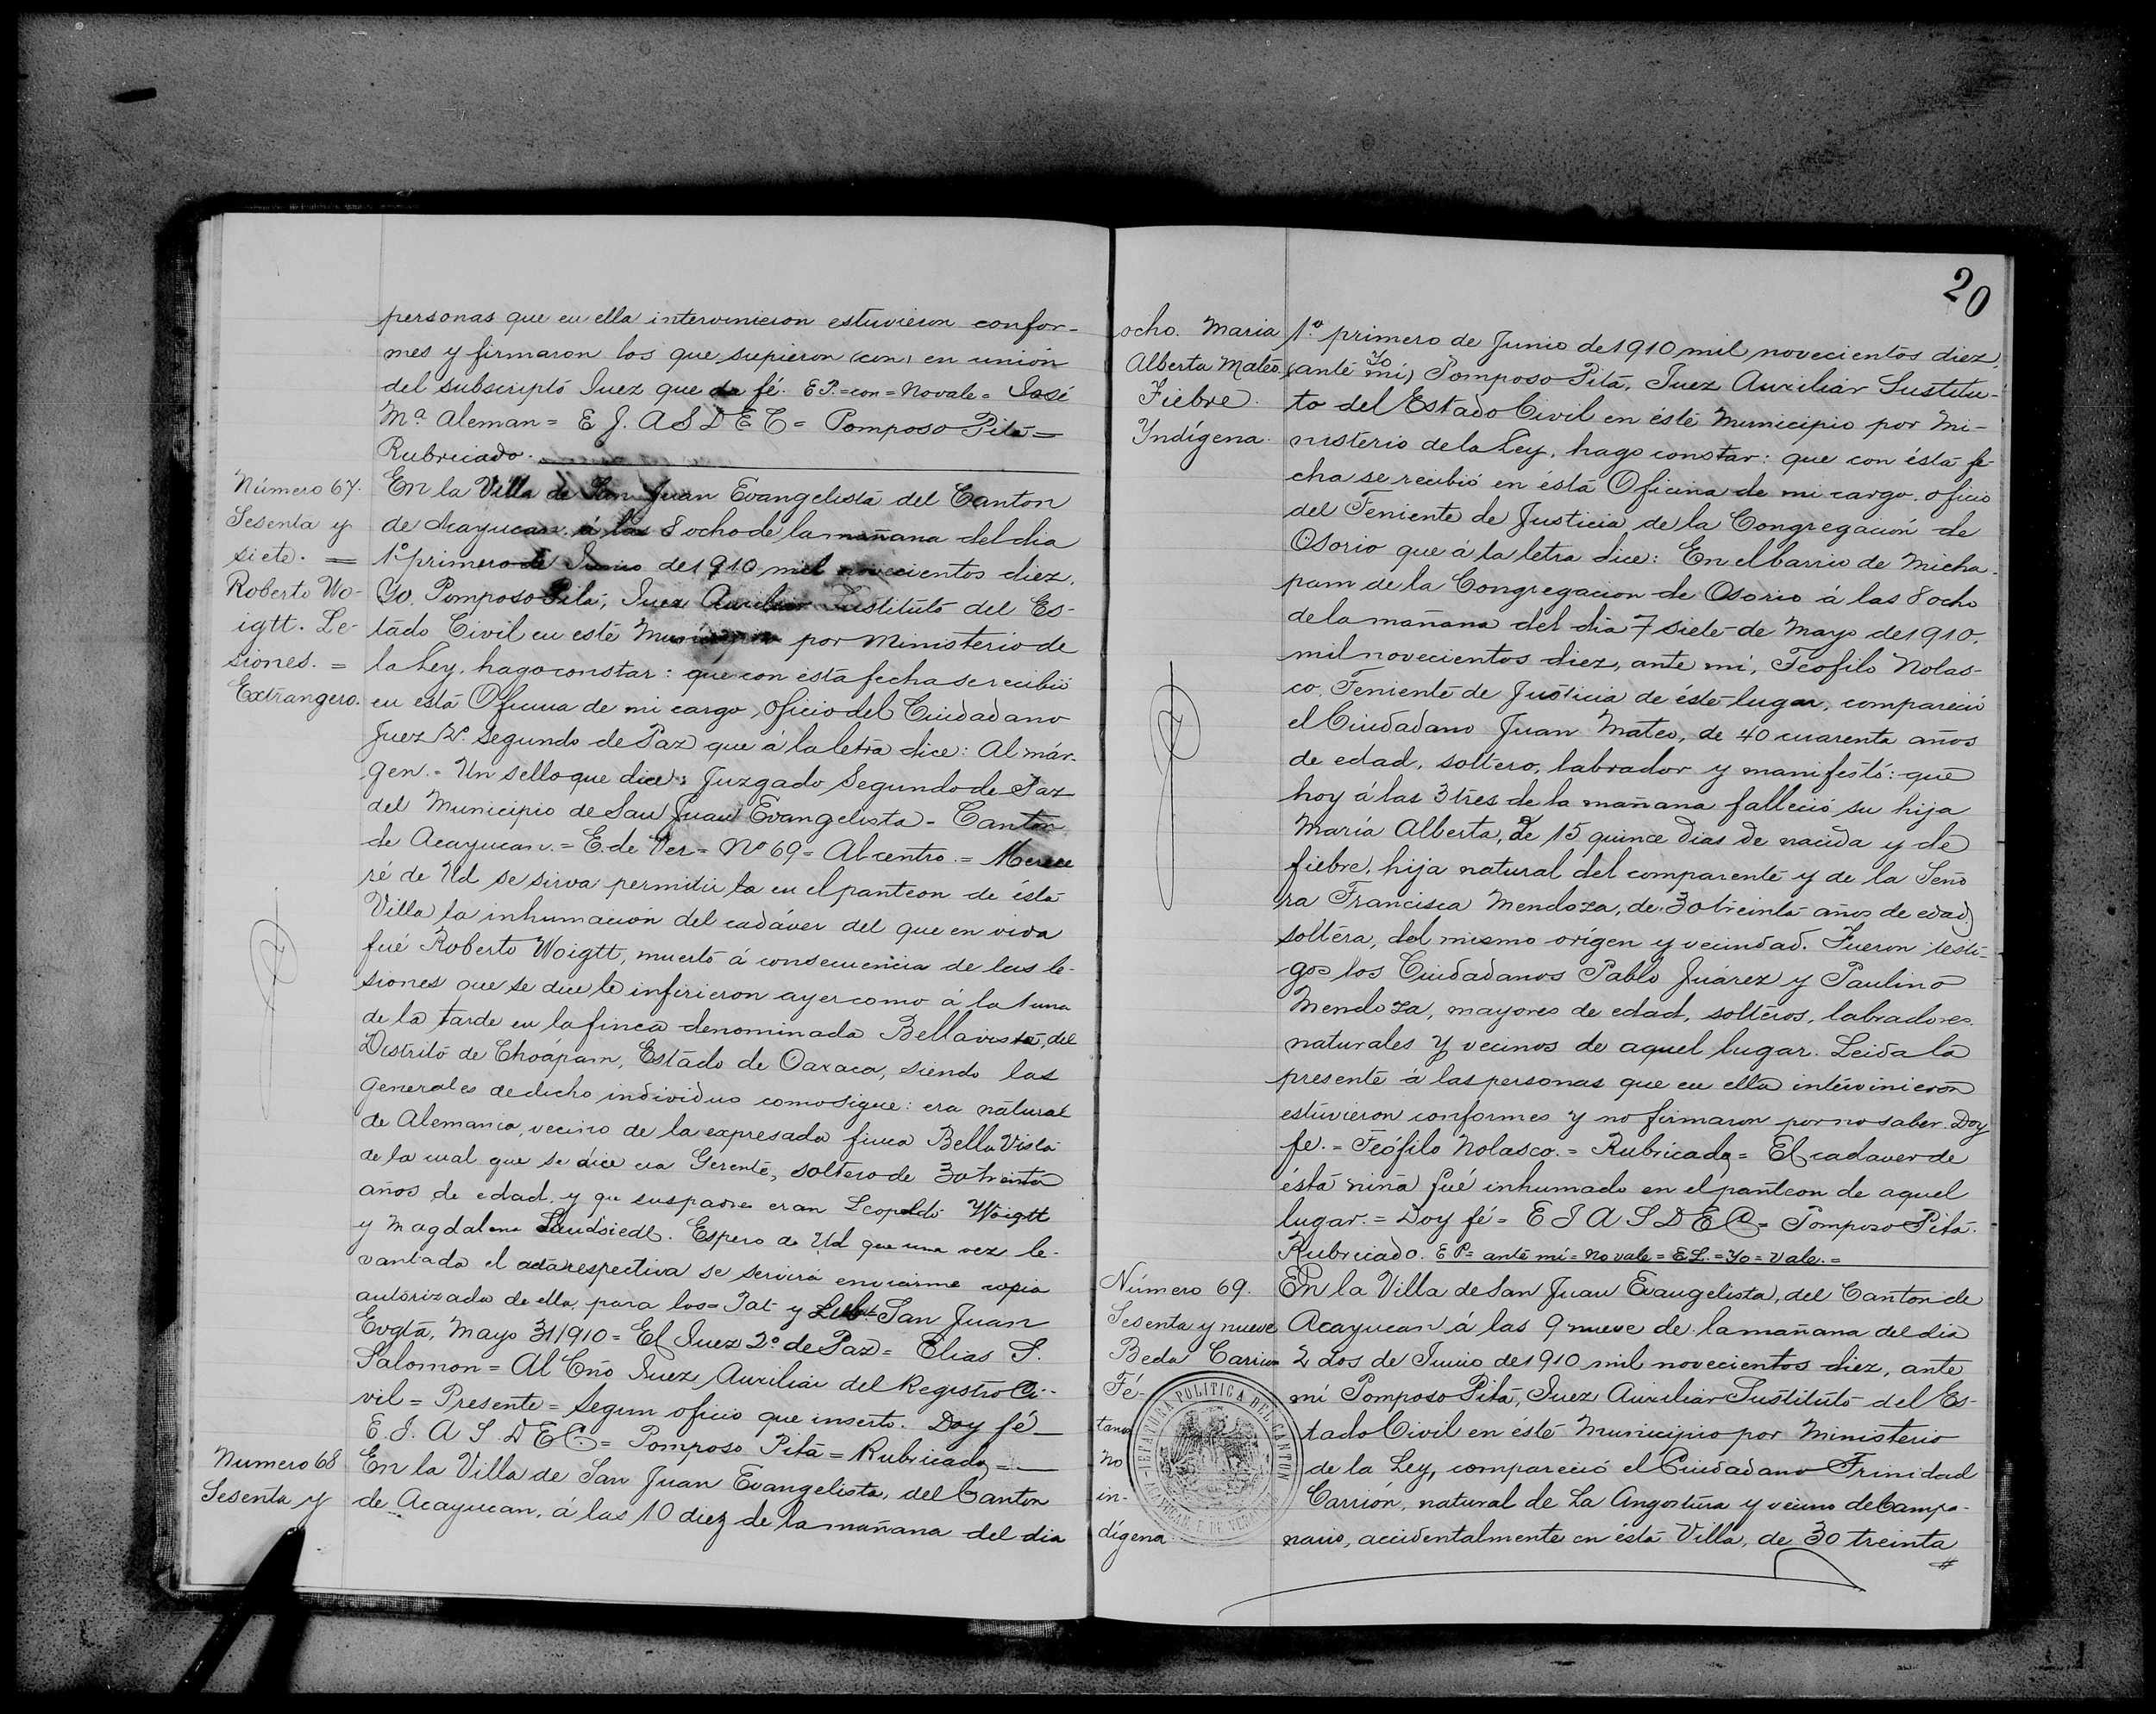 personas que en ella intervinieron estuvieron confor-
mes y firmaron los que supieron (con) en unión
del subscripto Juez que da fé. E P.=con=No vale= José
Mª Aleman= E J. A S D E C= Pomposo Pitá=
Rubricado.
Número 67.
Sesenta y
siete. =
Roberto Wo-
igtt. Le-
siones. =
Extrangero.
En la Villa de San Juan Evangelista del Canton
de Acayucan, á las 8 ocho de la mañana del dia
1º primero de Junio de 1910 mil novecientos diez,
Yo, Pomposo Pitá, Juez Auxiliar Sustituto del Es-
tado Civil en esté Municipio por Ministerio de
la Ley, hago constar: que con esta fecha se recibió
en está Oficina de mi cargo, oficio del Ciudadano
Juez 2º Segundo de Paz que á la letra dice: Al már-
gen.= Un sello que dice: Juzgado Segundo de Paz
del Municipio de San Juan Evangelista - Canton
de Acayucan.= E. de Ver= Nº 69= Al centro.= Merece
ré de Ud se sirva permitir la en el panteon de ésta
Villa, la inhumación del cadáver del que en vida
fué Roberto Woigtt, muerto á consecuencia de las le-
siones que se dice le infirieron ayer como á la 1 una
de la tarde en la finca denominada Bellavista, del
Distrito de Choápam, Estado de Oaxaca, siendo las
generales de dicho individuo como sigue: era natural
de Alemania, vecino de la expresada finca Bella Vista
de la cual que se dice era Gerente, soltero de 30 treinta
años de edad, y que sus padres eran Leopoldo Woigtt
y Magdalena Landsiedl. Espero de Ud que una vez le-
vantada el acta respectiva se servirá enviarme copia
autorizada de ella, para los= Sal- y Lib= San Juan
Evgtá, Mayo 31/910= El Juez 2º de Paz= Elias S.
Salomon= Al Cño Juez Auxiliar del Registro Ci-
vil= Presente= Segun oficio que inserto. Doy fé_
E. J. A S D E C.= Pomposo Pitá= Rubricado=
Numero 68
Sesenta y
En la Villa de San Juan Evangelista, del Canton
de Acayucan, á las 10 diez de la mañana del dia
20
ocho. Maria
Alberta Mateo.
Fiebre.
Yndígena.
1º primero de Junio de 1910 mil novecientos diez,
yo
(anté mi) Pomposo Pitá, Juez Auxiliar Sustitu-
to del Estado Civil en ésté Municipio por Mi-
nisterio de la Ley, hago constar: que con ésta fe-
cha se recibió en ésta Oficina de mi cargo, oficio
del Teniente de Justicia de la Congregación de
Osorio que á la letra dice: En el barrio de Micha-
pam de la Congregacion de Osorio á las 8 ocho
de la mañana del dia 7 siete de Mayo de 1910,
mil novecientos diez, ante mí, Teofilo Nolas-
co, Teniente de Justicia de éste lugar, compareció
el Ciudadano Juan Mateo, de 40 cuarenta años
de edad, soltero, labrador y manifestó: que
hoy á las 3 tres de la mañana falleció su hija
María Alberta, de 15 quince dias de nacida y de
fiebre, hija natural del comparente y de la Seño
ra Francisca Mendoza, de 30 treinta años de edad,
soltera, del mismo orígen y vecindad. Fueron testi-
gos los Ciudadanos Pablo Juárez y Paulino
Mendoza, mayores de edad, solteros, labradores,
naturales y vecinos de aquel lugar. Leida la
presente á las personas que en ella intervinieron
estuvieron conformes y no firmaron por no saber. Doy
fe.= Teófilo Nolasco.= Rubricado= El cadaver de
ésta niña fué inhumado en el panteon de aquel
lugar.= Doy fé= E J A S D E C= Pomposo Pitá.
Rubricado. E P= anté mí= no vale= E L.= Yo= vale.=
Número 69.
Sesenta y nueve
Beda Carrion
Fé-
tano
No
in-
dígena
JEFATURA POLITICA DEL CANTON
En la Villa de San Juan Evangelista, del Canton de
Acayucan á las 9 nueve de la mañana del dia
2 dos de Junio de 1910 mil novecientos diez, ante
mí Pomposo Pitá, Juez Auxiliar Sustituto del Es-
tado Civil en ésté Municipio por Ministerio
de la Ley, compareció el Ciudadano Trinidad
Carrión, natural de La Angostura y vecino de Campa-
nario, accidentalmente en ésta Villa, de 30 treinta
#